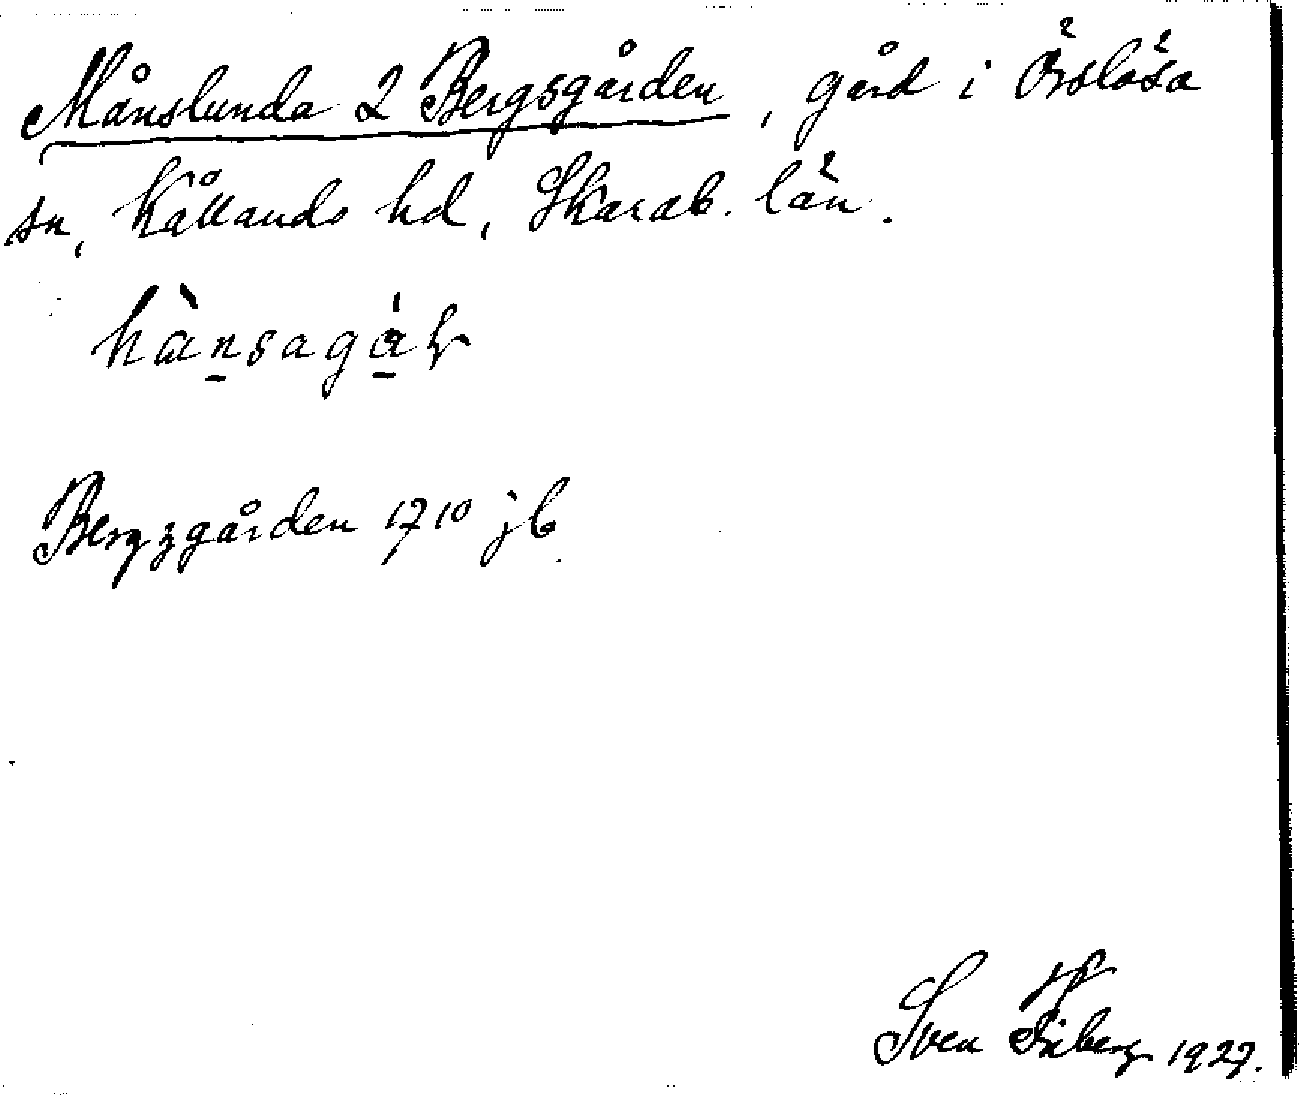 Månslunda 2 Bergsgården, gård i Örslösa
sn, Kållands hd, Skarab. län.
hànsagá
Bergzgården 1710 jb.
Sven Friberg 1927.